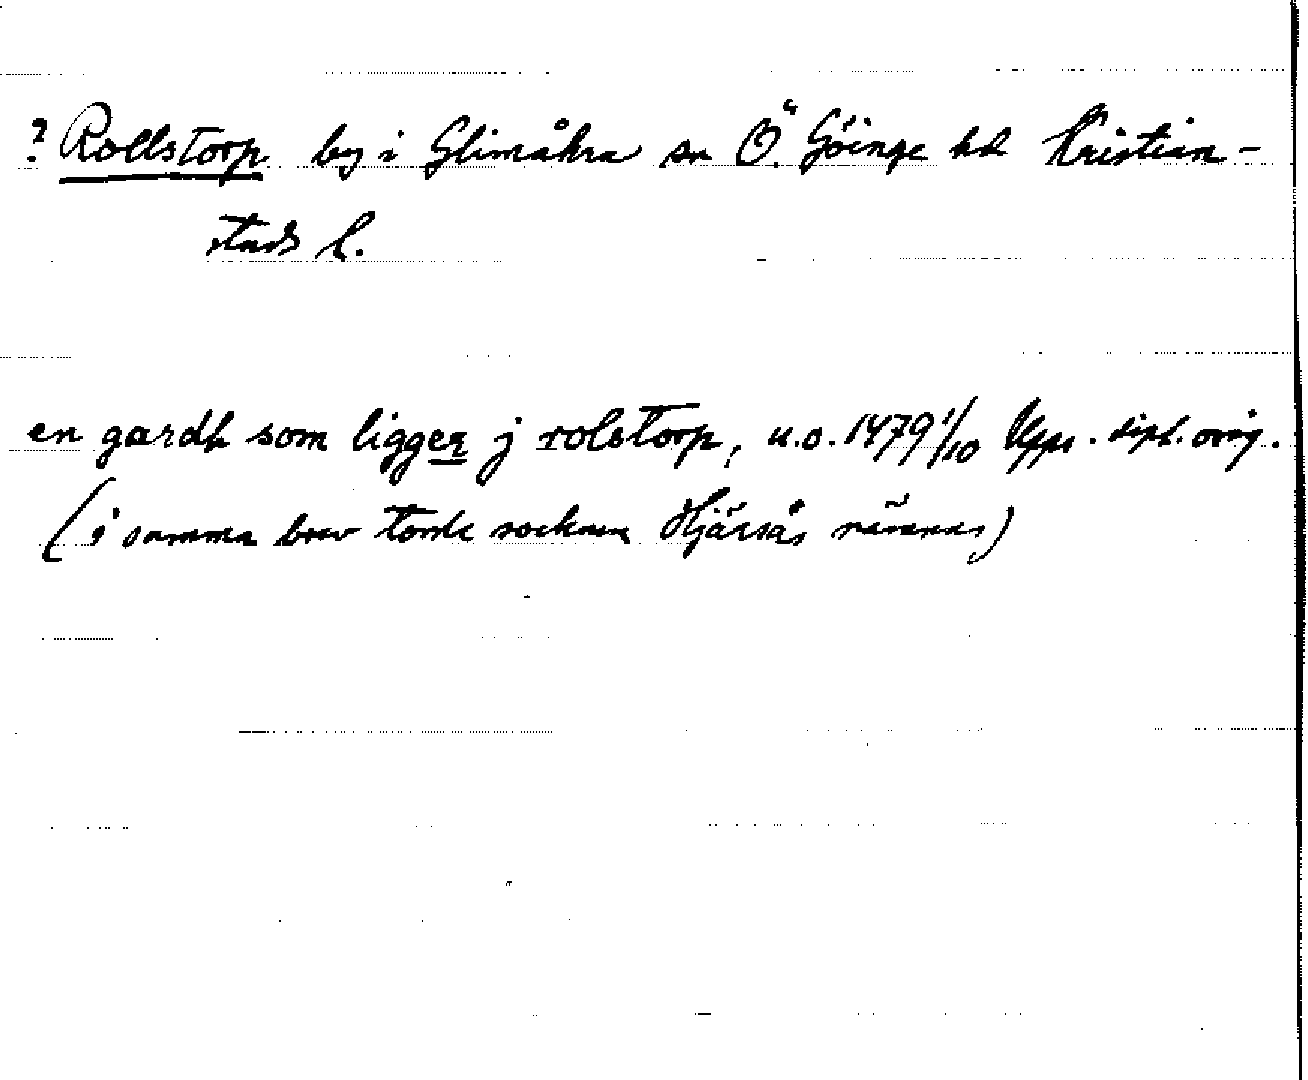 ? Rollstorp by i Glimåkra sn Ö. Göinge hd Kristian-
stads l.
en gardh som ligger j rolstorp, u.o. 1479 1/10 Upps. dipl. orig.
(i samma brev torde socknen Hjärsås nämnas)